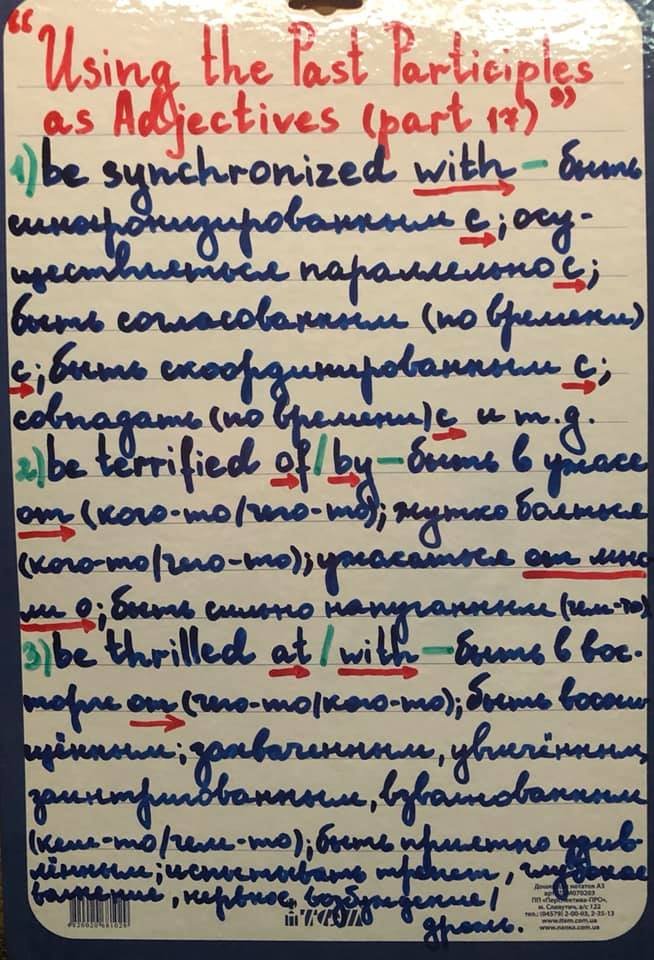 "Using the Past Participles
as Adjectives (part 17)"
1) be synchronized with – быть
синхронизированным с; осу-
ществляться параллельно с;
быть согласованным (по времени)
с; быть скоординированным с;
совпадать (по времени) с и т.д.
2) be terrified of/by – быть в ужасе
от (кого-то/чего-то); жутко бояться
(кого-то/чего-то); ужасаться от мыс
ли о; быть сильно напуганным (чем-то)
3) be thrilled at/with – быть в вос-
торге от (чего-то/кого-то); быть восхи
щённым; захваченным, увлечённым,
заинтригованным, взволнованным
(кем-то/чем-то); быть приятно удив-
лённым; испытывать трепет, глубокое
волнение, нервное возбуждение/
дрожь.
Дошка
нотаток А3
ПП «Перспектива-ПРО»,
м. Славутич, а/с 122
тел.: (04579) 2-00-03, 2-35-13
www.item.com.ua
www.nanka.com.ua